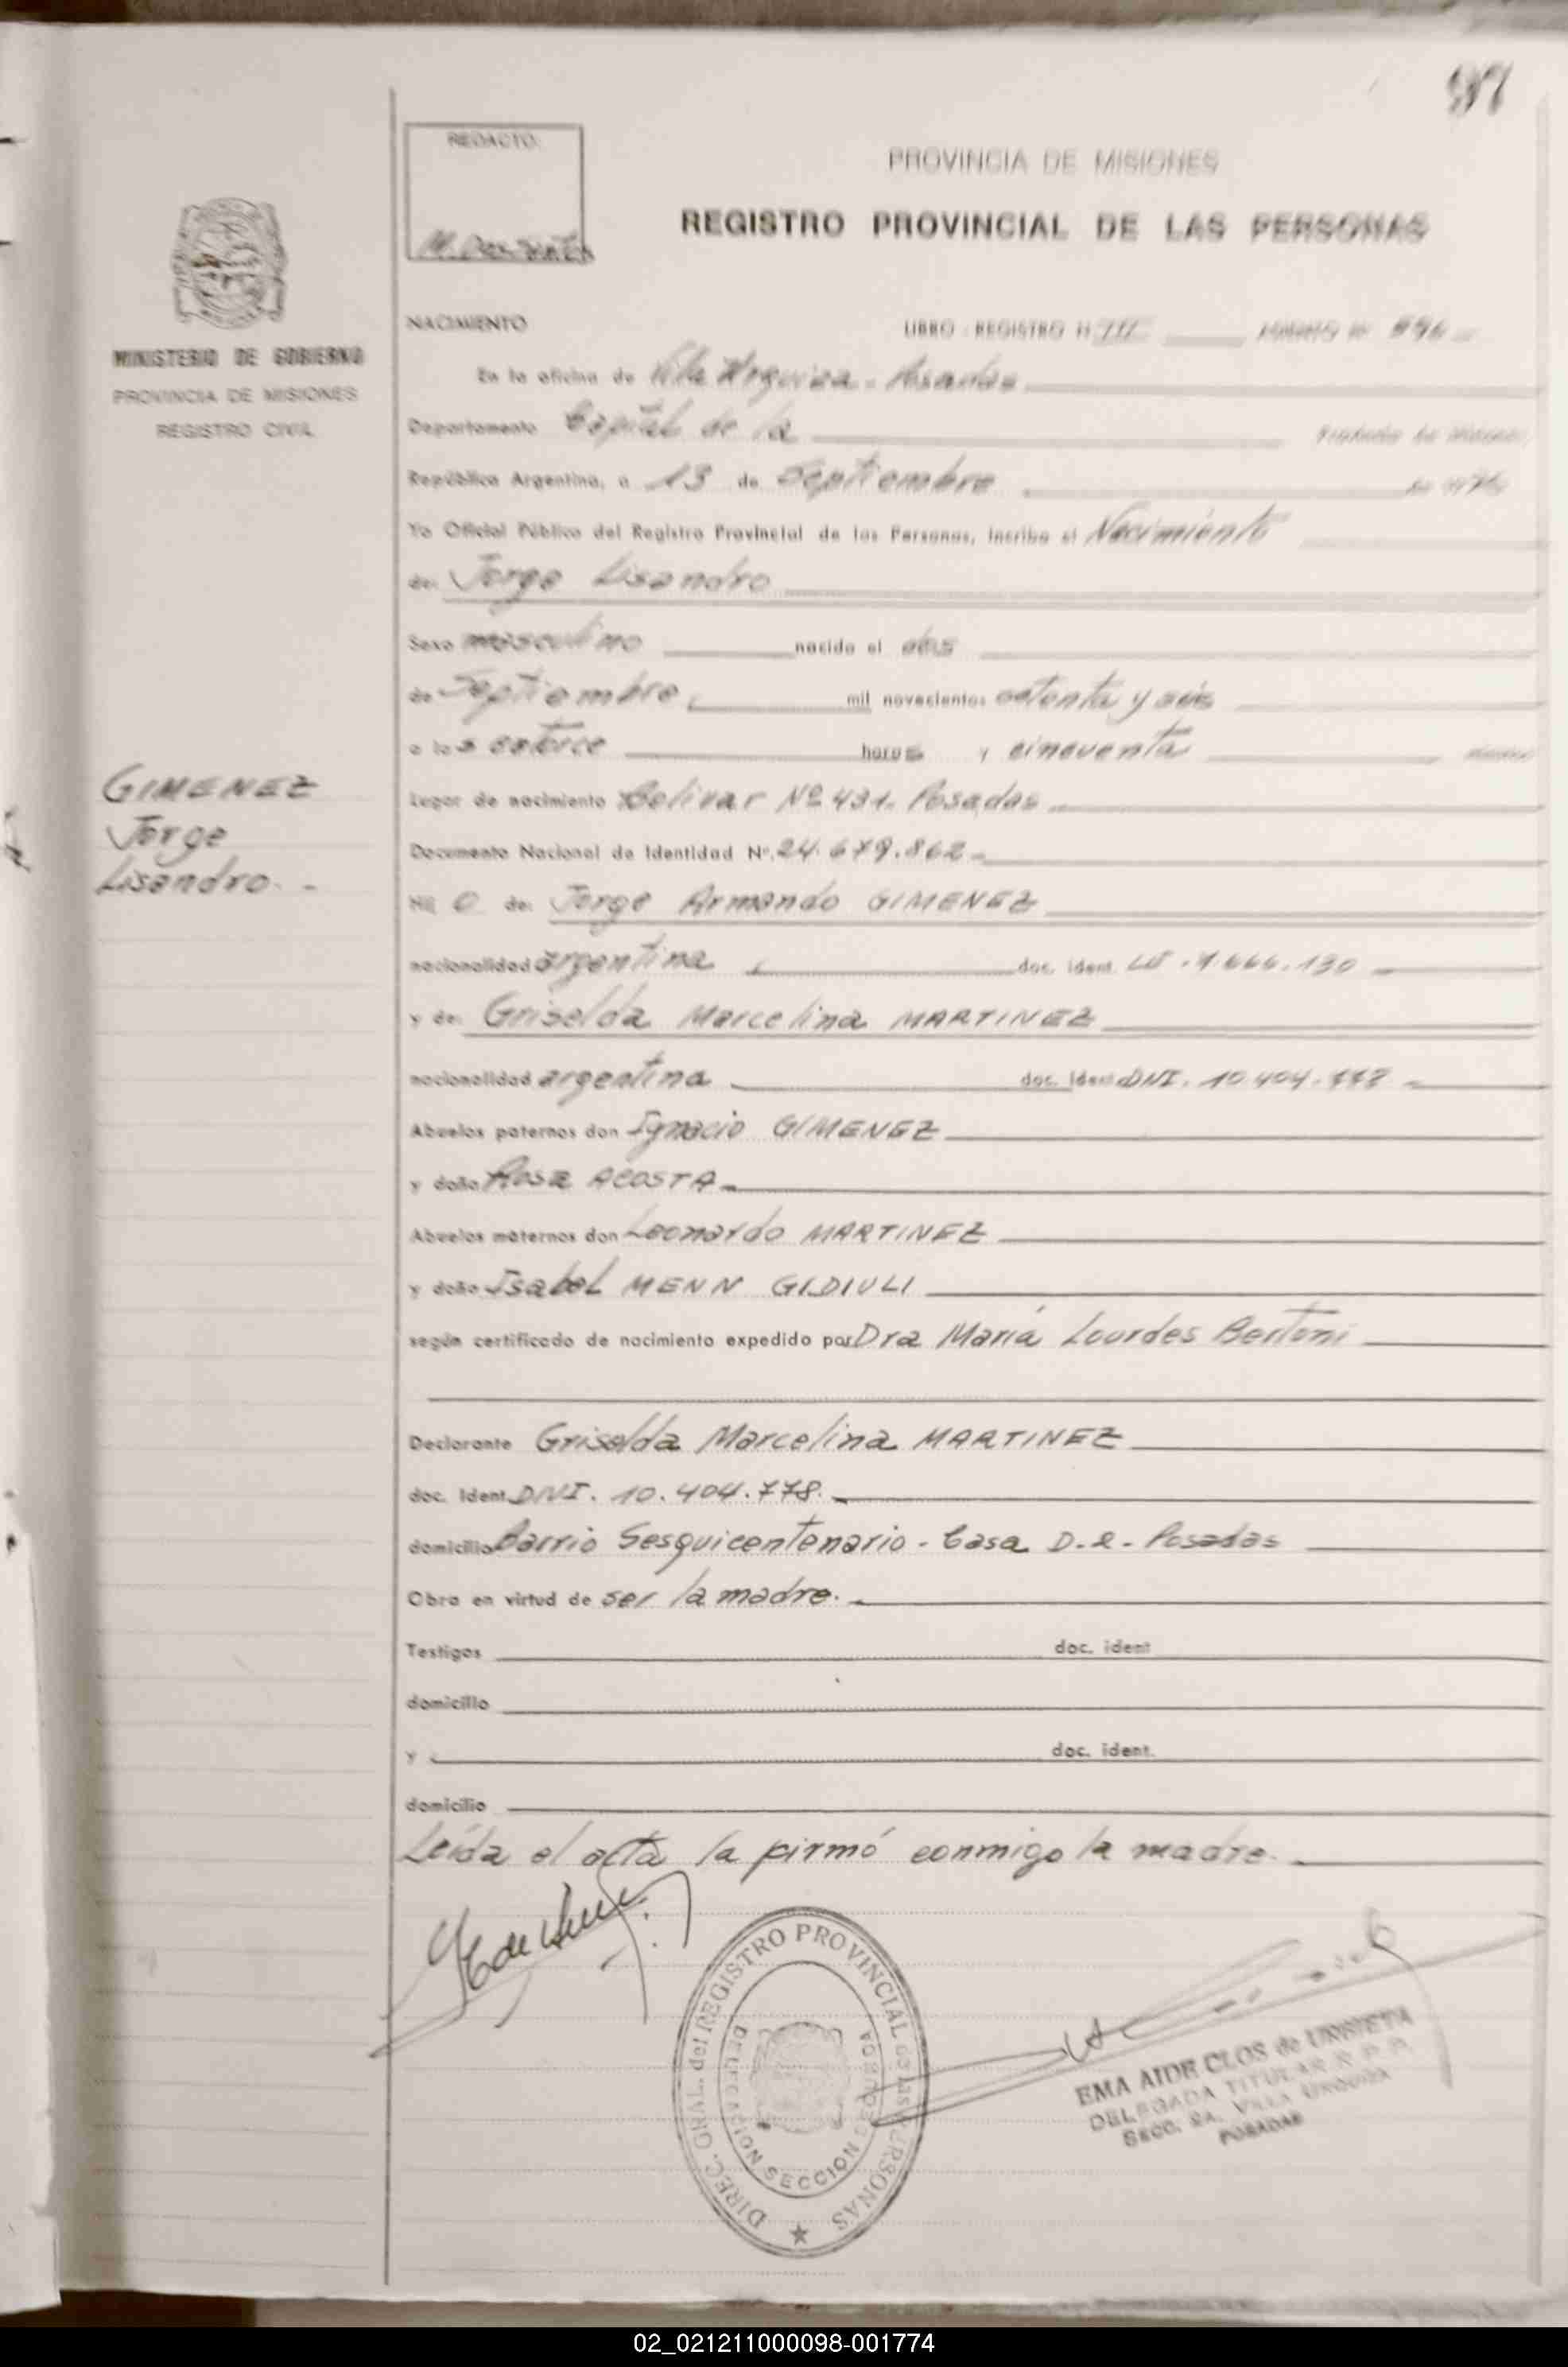 97
REDACTO:
PROVINCIA DE MISIONES
REGISTRO PROVINCIAL DE LAS PERSONAS
MINISTERIO DE GOBIERNO
PROVINCIA DE MISIONES
REGISTRO CIVIL
NACIMIENTO LIBRO - REGISTRO N III
En la oficina de Villa Urquiza - Posadas
Departamento Capital de la Provincia de Misiones,
República Argentina, a 13 de Septiembre
Yo Oficial Público del Registro Provincial de las Personas, inscribo el Nacimiento
de: Jorge Lisandro
Sexo masculino nacido el dos
de Septiembre, mil novecientos setenta y seis
a las catorce horas y cincuenta
GIMENEZ
Jorge
Lisandro. -
Lugar de nacimiento Bolivar Nº 431. Posadas
Documento Nacional de Identidad Nº. 24.679.862-
Hij o de: Jorge Armando GIMENEZ
nacionalidad argentina doc. ident.
y de: Griselda Marcelina MARTINEZ
nacionalidad argentina doc. ident DNI. 10.404.778 -
Abuelos paternos don Ignacio GIMENEZ
y doña Rosa ACOSTA-
Abuelos maternos don Leonardo MARTINEZ
y doña Isabel MENN GIDIULI
según certificado de nacimiento expedido por Dra María Lourdes Bertoni
Declarante Griselda Marcelina MARTINEZ
doc. ident. DNI. 10.404.778.-
domicilio Barrio Sesquicentenario - Casa D.2 - Posadas
Obra en virtud de ser la madre.-
Testigos doc. ident
domicilio
y doc. ident.
domicilio
Leída el acta la firmó conmigo la madre. -
DIREC. GRAL. del REGISTRO PROVINCIAL de las PERSONAS
DELEGACION SECCION SEGUNDA
EMA AIDE CLOS de URBIETA
DELEGADA TITULAR R. P. P.
SECC. 2A. VILLA URQUIZA
POSADAS
02_021211000098-001774